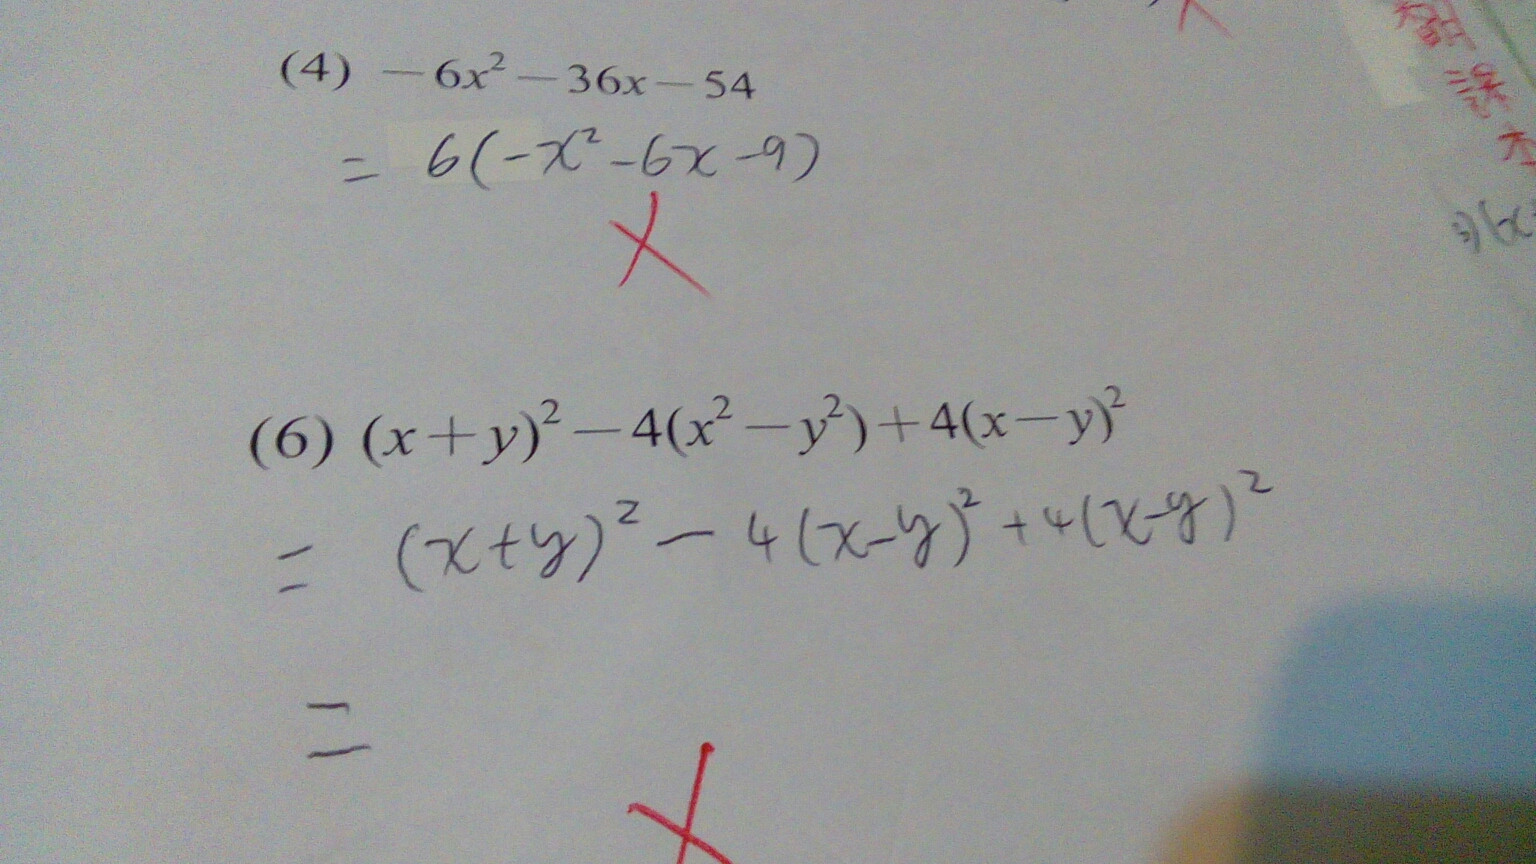 (4) −6x²−36x−54
= 6(-x²-6x-9)
(6) (x+y)²−4(x²−y²)+4(x−y)²
= (x+y)²-4(x-y)²+4(x-y)²
=
誤